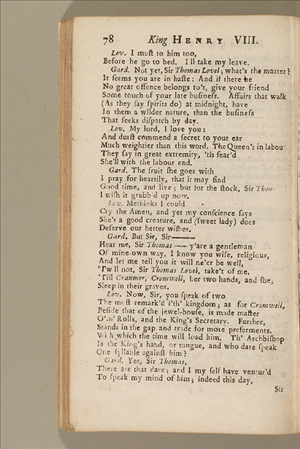 78 King HENRY VIII.
Lov. I muſt to him too,
Before he go to bed. I'll take my leave.
Gard. Not yet, Sir Thomas Lovel; what's the matter?
It ſeems you are in haſte: And if there be
No great offence belongs to't, give your friend
Some touch of your late buſineſs. Affairs that walk
(As they ſay ſpirits do) at midnight, have
In them a wilder nature, than the buſineſs
That ſeeks diſpatch by day.
Lov. My lord, I love you;
And durſt commend a ſecret to your ear
Much weightier than this word. The Queen's in labou
They ſay in great extremity, 'tis fear'd
She'll with the labour end.
Gard. The fruit ſhe goes with
I pray for heartily, that it may find
Good time, and live; but for the ſtock, Sir Thom
I wiſh it grubb'd up now.
Lov. Methinks I could
Cry the Amen, and yet my conſcience ſays
She's a good creature, and (ſweet lady) does
Deſerve our better wiſhes.
Gard. But Sir, Sir———
Hear me, Sir Thomas — y'are a gentleman
Of mine own way, I know you wiſe, religious,
And let me tell you it will ne'er be well,
'Twill not, Sir Thomas Lovel, take't of me,
'Till Cranmer, Cromwell, her two hands, and ſhe,
Sleep in their graves.
Lov. Now, Sir, you ſpeak of two
The moſt remark'd i'th' kingdom; as for Cromwell,
Beſide that of the jewel-houſe, is made maſter
O'th' Rolls, and the King's Secretary. Further,
Stands in the gap and trade for more preferments,
With which the time will load him. Th' Archbiſhop
Is the King's hand, or tongue, and who dare ſpeak
One ſyllable againſt him?
Gard. Yes, Sir Thomas,
There are that dare; and I my ſelf have ventur'd
To ſpeak my mind of him; indeed this day,
Sir